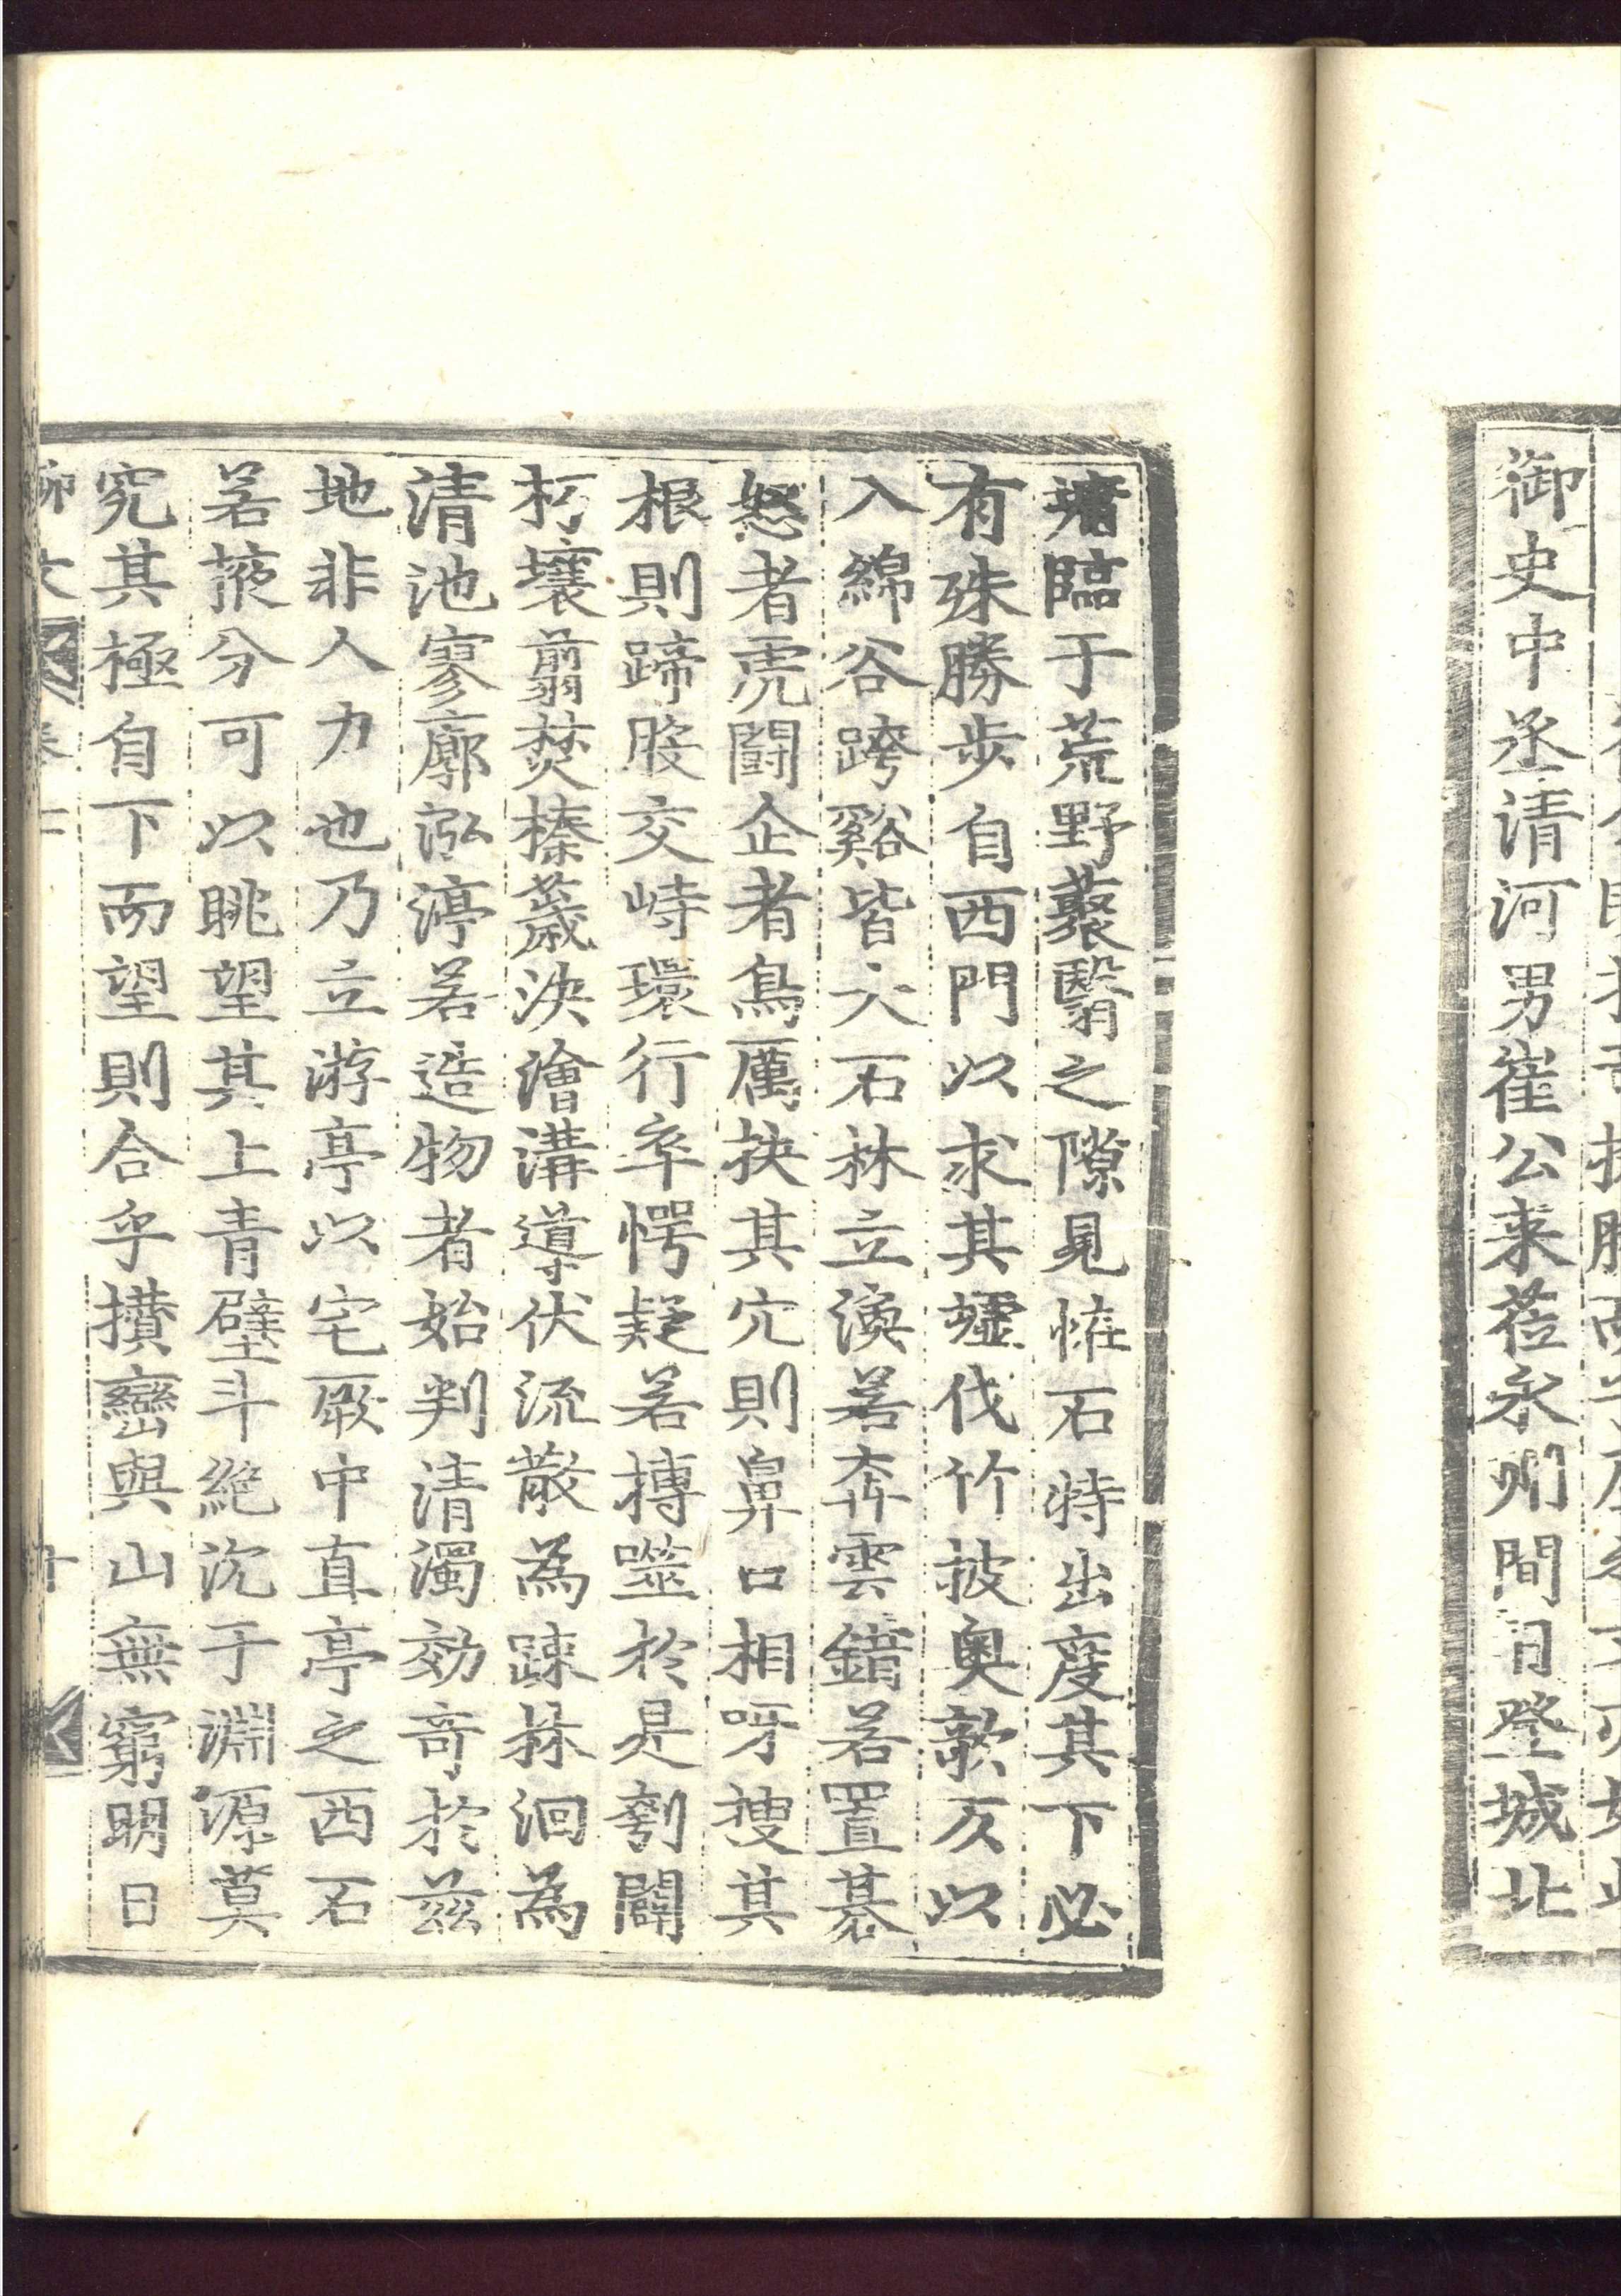 御史中丞清河男崔公来莅永州間日登城北
墉臨于荒野藂翳之隙見怪石特出度其下必
有殊勝步自西門以求其墟伐竹披奧欹仄以
入綿谷跨谿皆大石林立渙若奔雲錯若置碁
怒者虎鬪企者鳥厲抉其穴則鼻口相呀搜其
根則蹄股交峙環行卒愕疑若搏噬於是刳闢
朽壤翦焚榛薉決澮溝導伏流散為踈林洄為
清池寥廓泓渟若造物者始判清濁効奇於茲
地非人力也乃立游亭以宅厥中直亭之西石
若掖分可以眺望其上青壁斗絶沉于淵源莫
究其極自下而望則合乎攢巒與山無窮明日